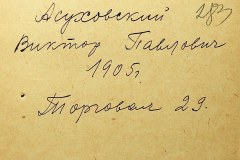 Асуховский
283
Виктор Павлович
1905г.
Торговая 29.